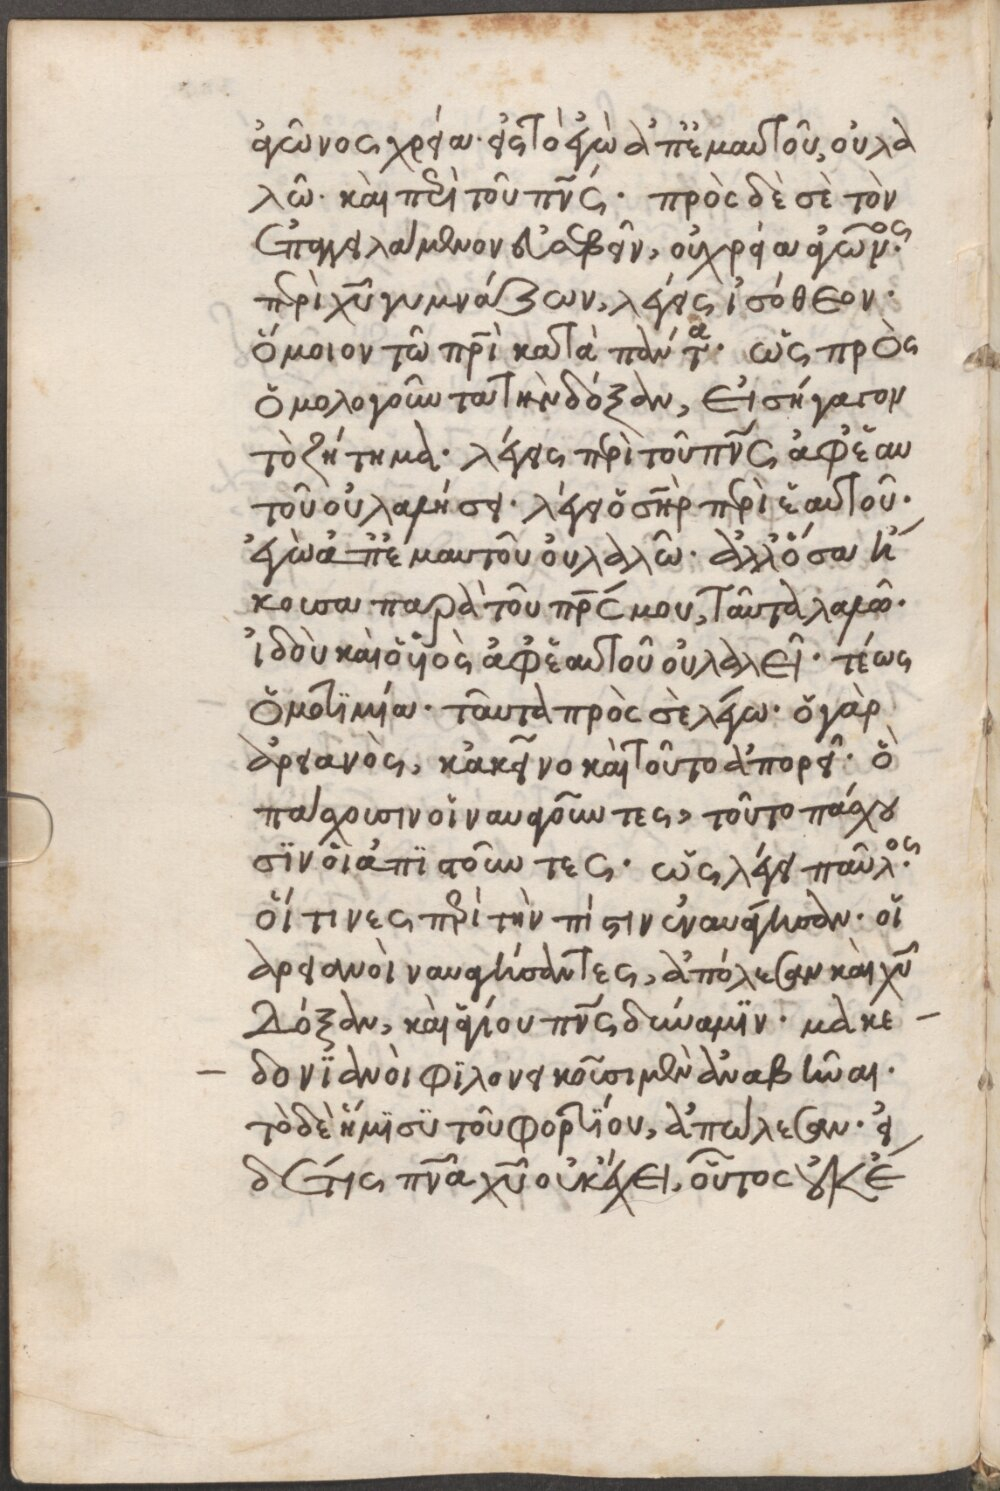 ἀγῶνος χρεία· εἰς τὸ ἐγὼ ἀπ' ἐμαυτοῦ, οὐ λα
λῶ· καὶ περὶ τοῦ πν̅ς· πρὸς δὲ σὲ τὸν
ἐπαγγελλόμενον εὐσεβεῖν, οὐ χρεία ἀγῶνος·
περὶ χ̅υ γυμνάζων, λέγεις ἰσόθεον·
ὅμοιον τῶ πρ̅ι κατὰ πάντα· ὡς πρὸς
ὁμολογοῦντα τὴν δόξαν, εἰσήγαγον
τὸ ζήτημα· λέγεις περὶ τοῦ πν̅ς ἀφ' ἑαυ
τοῦ οὐ λαλήσει· λέγει ὁ σ̅ηρ περὶ ἑαυτοῦ·
ἐγὼ ἀπ' ἐμαυτοῦ οὐ λαλῶ· ἀλλ' ὅσα ἤ
κουσα παρὰ τοῦ πρ̅ς μου, ταῦτα λαλῶ·
ἰδοὺ καὶ ὁ υἱὸς ἀφ' ἑαυτοῦ οὐ λαλεῖ· τέως
ὁμοτιμία· ταῦτα πρὸς σὲ λέγω· ὁ γὰρ
ἀρειανὸς, κἀκεῖνο καὶ τοῦτο ἀπορεῖ· ὃ
πάσχουσιν οἱ ναυαγοῦντες, τοῦτο πάσχου
σϊν οἱ ἀπϊστοῦντες· ὡς λέγει παῦλος·
οἵτινες περὶ τὴν πίστιν ἐναυάγησαν· οἱ
ἀρειανοὶ ναυαγήσαντες, ἀπόλεσαν καὶ χ̅υ
δόξαν, καὶ ἁγίου πν̅ς δύναμϊν· μακε
δονϊανοὶ φϊλονεικοῦσι μὲν ἀναβῆναι·
τὸ δὲ ἥμϊσϋ τοῦ φορτίου, ἀπώλεσαν· εἰ
δέ τις πν̅α χ̅υ οὐκ ἔχει, οὗτος οὐκ ἔ